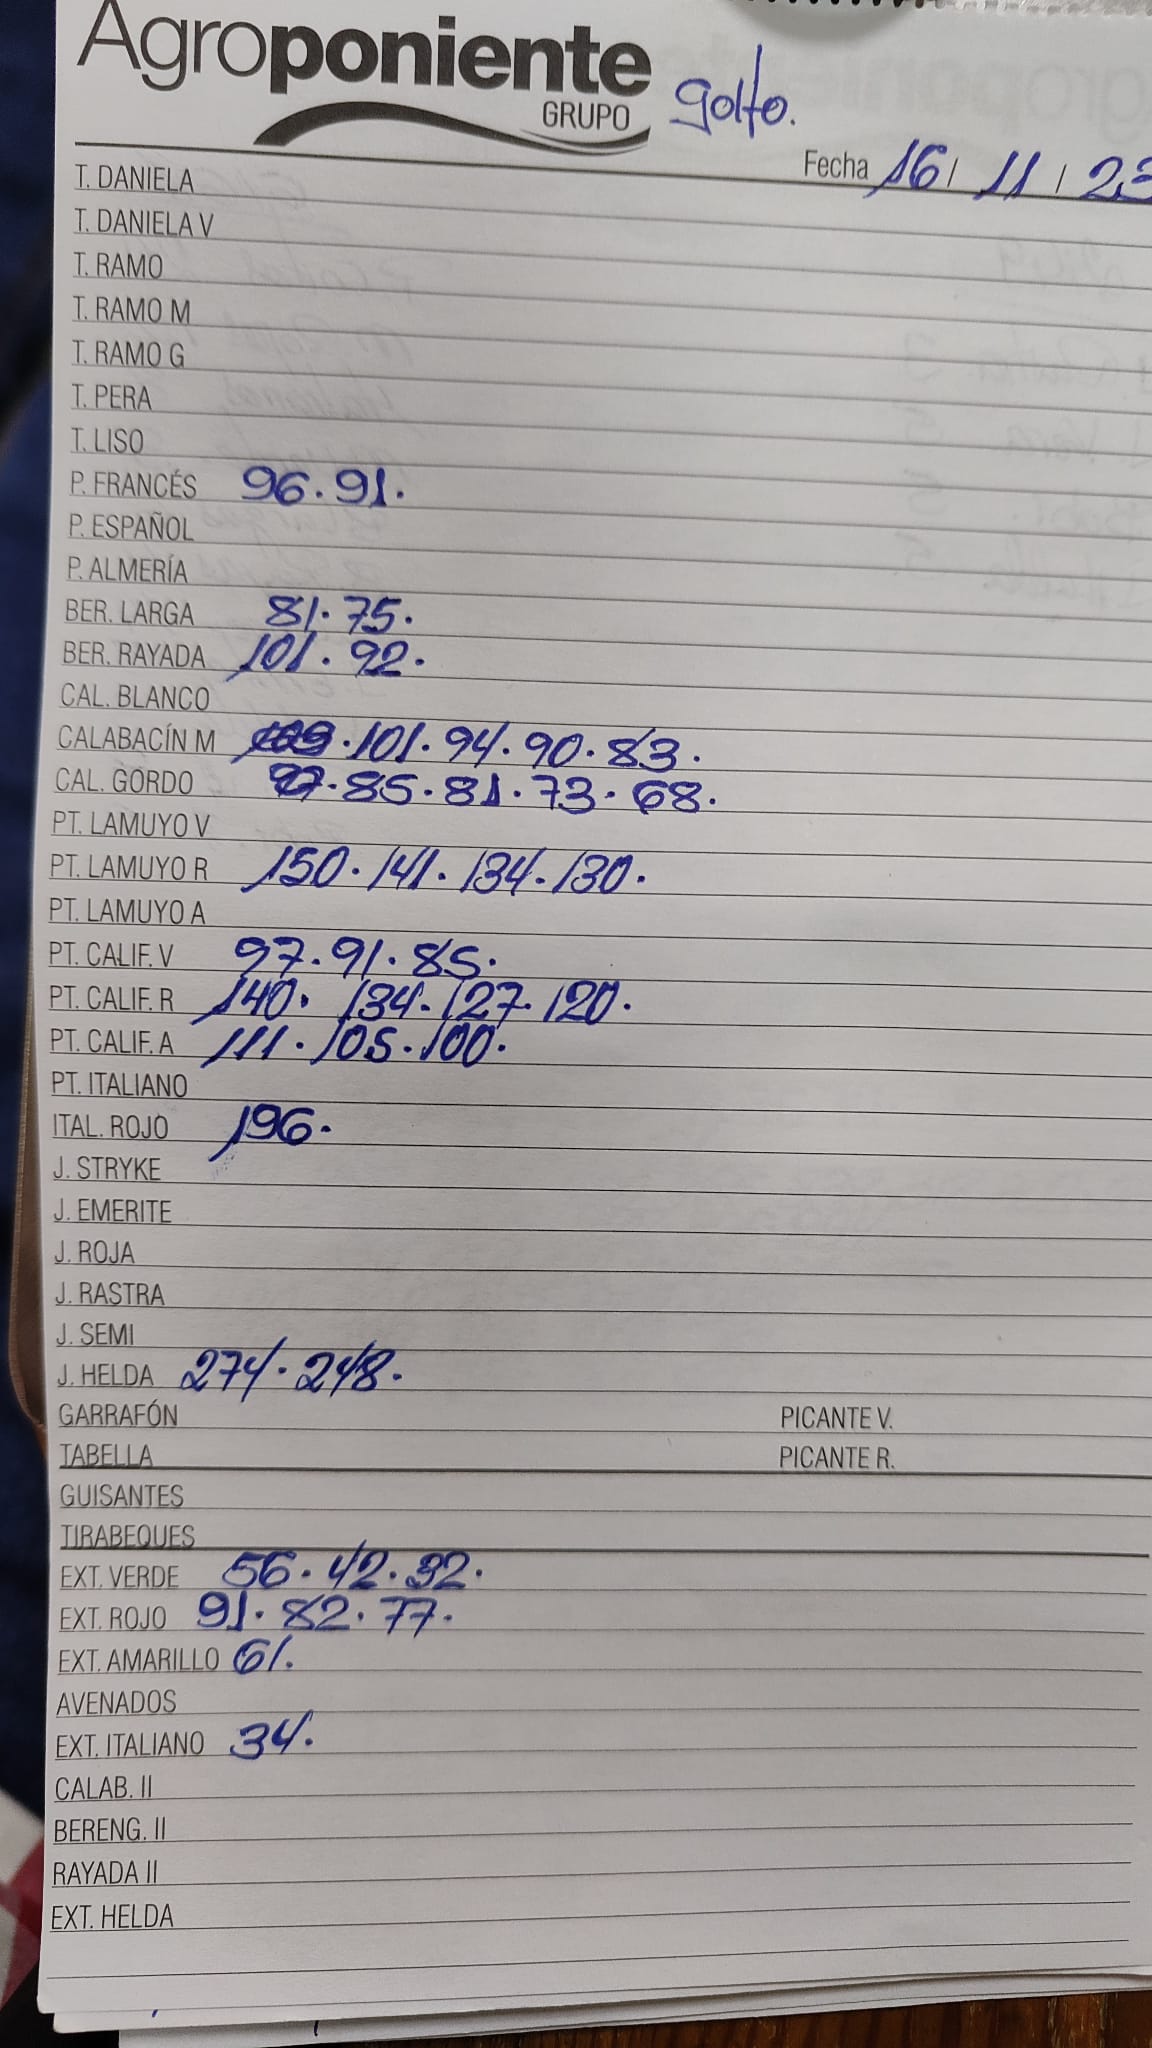 Agroponiente
GRUPO
golfo.
Fecha 16 / 11 / 23
T. DANIELA
T. DANIELA V
T. RAMO
T. RAMO M
T. RAMO G
T. PERA
T. LISO
P. FRANCÉS 96. 91.
P. ESPAÑOL
P. ALMERÍA
BER. LARGA 81. 75.
BER. RAYADA 101. 92.
CAL. BLANCO
CALABACÍN M . 101. 94. 90. 83.
CAL. GORDO . 85. 81. 73. 68.
PT. LAMUYO V
PT. LAMUYO R 150. 141. 134. 130.
PT. LAMUYO A
PT. CALIF. V 97. 91. 85.
PT. CALIF. R 140. 134. 127. 120.
PT. CALIF. A 111. 105. 100.
PT. ITALIANO
ITAL. ROJO 196.
J. STRYKE
J. EMERITE
J. ROJA
J. RASTRA
J. SEMI
J. HELDA 274. 248.
GARRAFÓN PICANTE V.
TABELLA PICANTE R.
GUISANTES
TIRABEQUES
EXT. VERDE 56. 42. 32.
EXT. ROJO 91. 82. 77.
EXT. AMARILLO 61.
AVENADOS
EXT. ITALIANO 34.
CALAB. II
BERENG. II
RAYADA II
EXT. HELDA